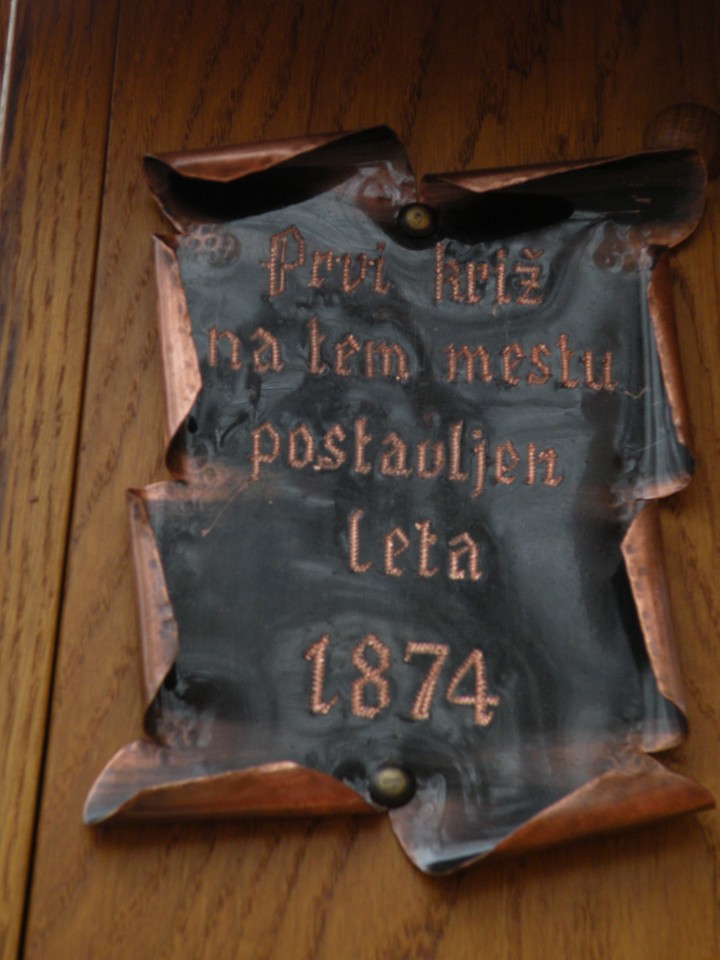 Prvi križ
na tem mestu
postavljen
leta
1874